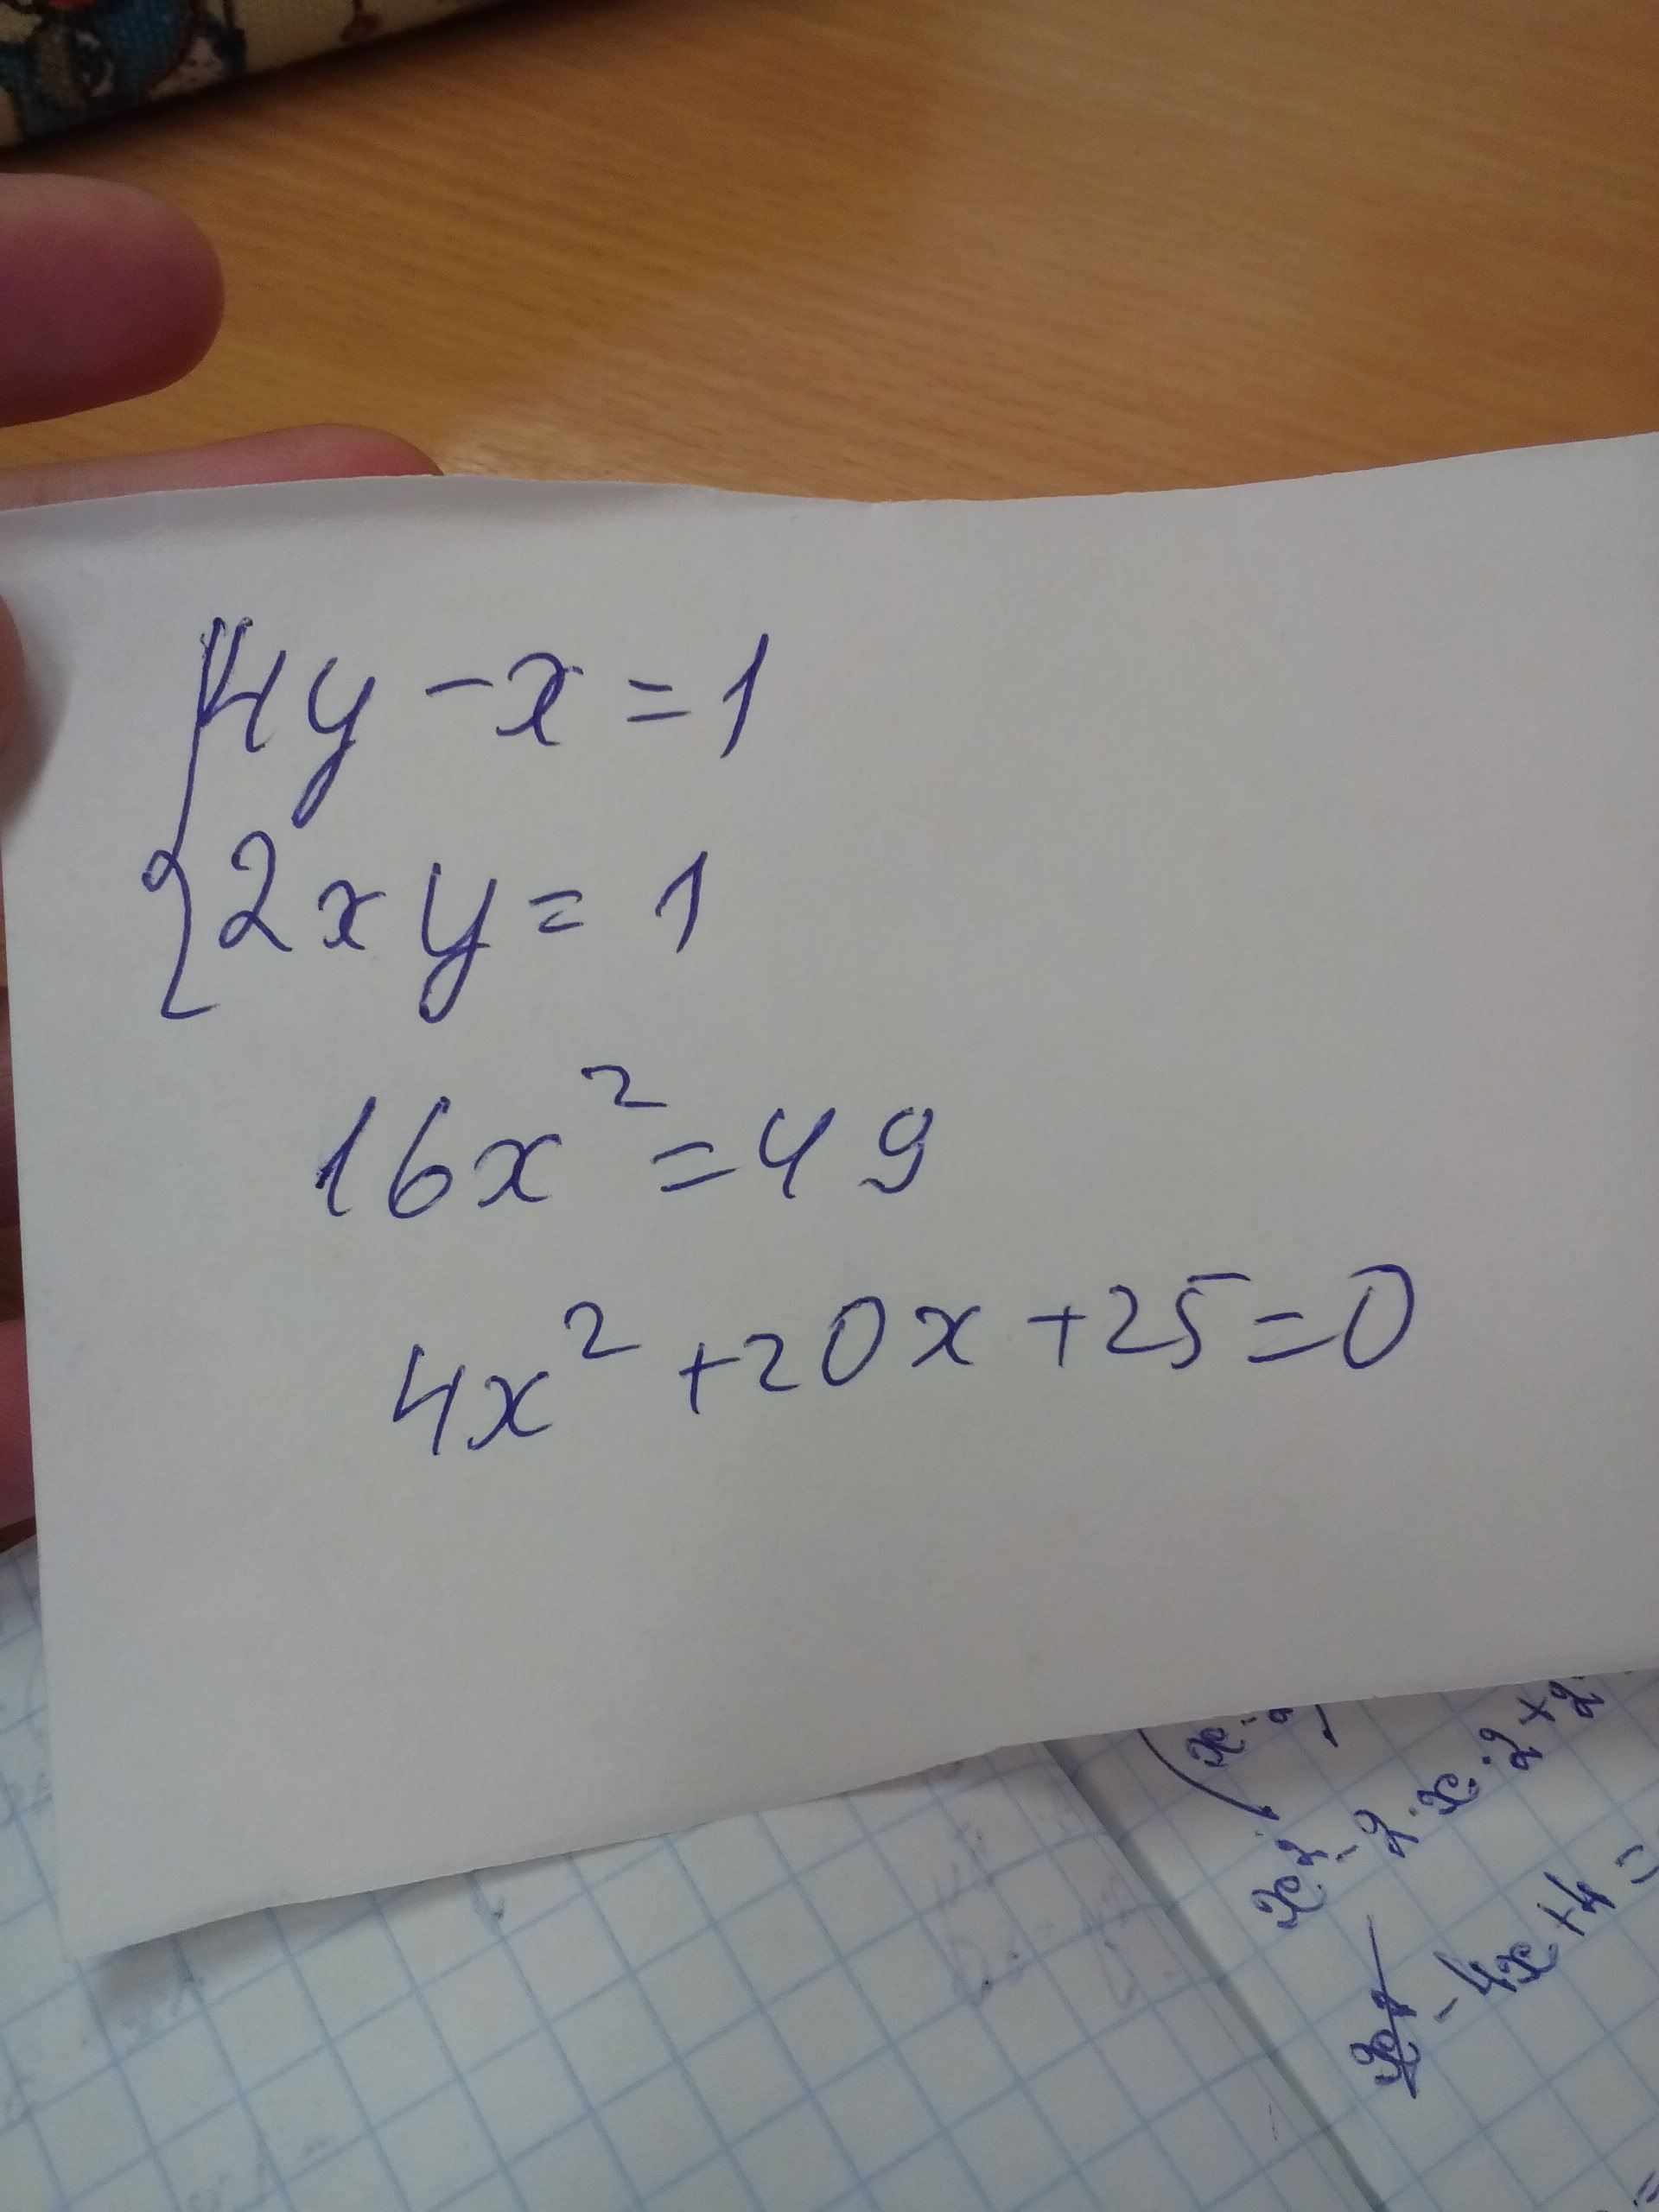 4y - x = 1
2xy = 1
16x² = 49
4x² + 20x + 25 = 0
x² - 2·x·2 + 2
- 4x + 4 =